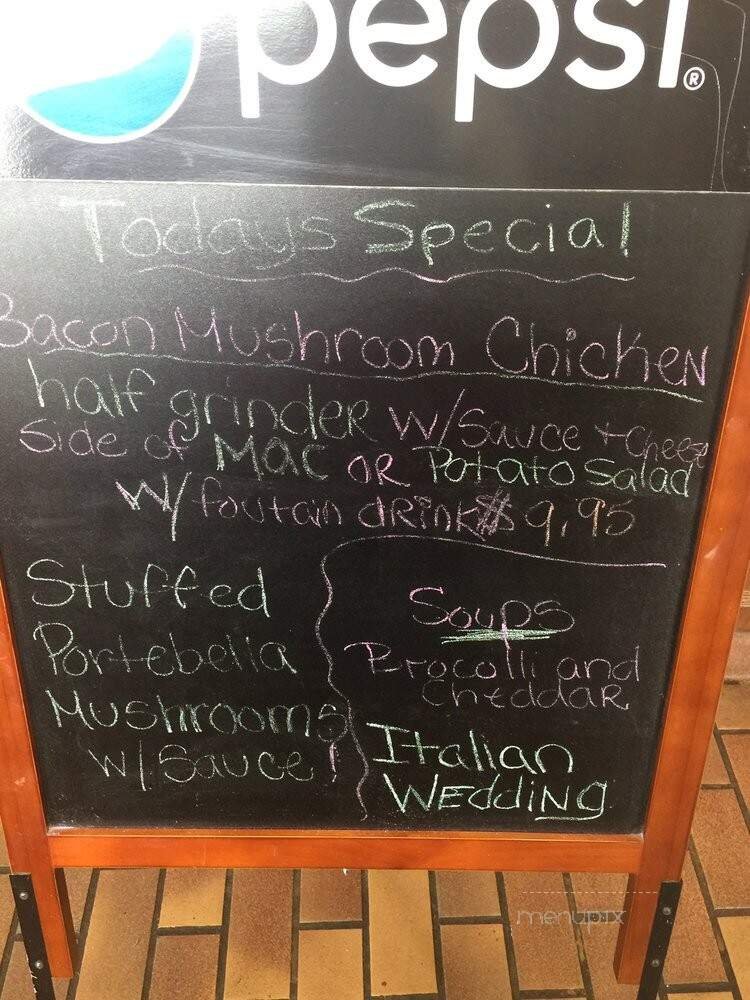 pepsi®
Todays Special
Bacon Mushroom Chicken
half grinder w/Sauce + Cheese
Side of Mac or Potato Salad
w/ foutain drink $ 9.95
Stuffed
Portebella
Mushrooms
w/ Sauce!
Soups
Brocolli and
Cheddar
Italian
Wedding
menupix